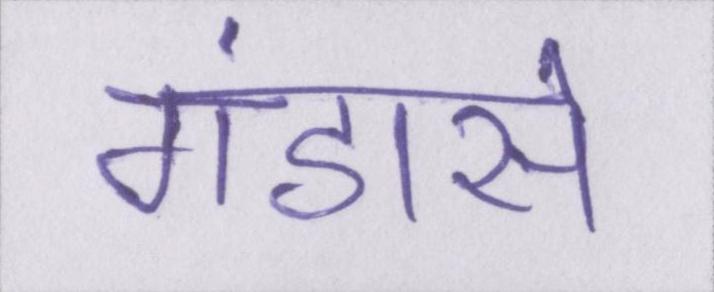 गंडासे